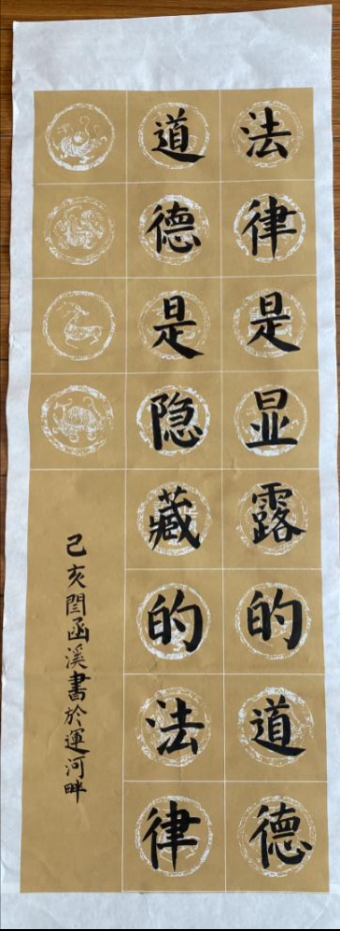 法律是显露的道德
道德是隐藏的法律
己亥闫函溪書於運河畔